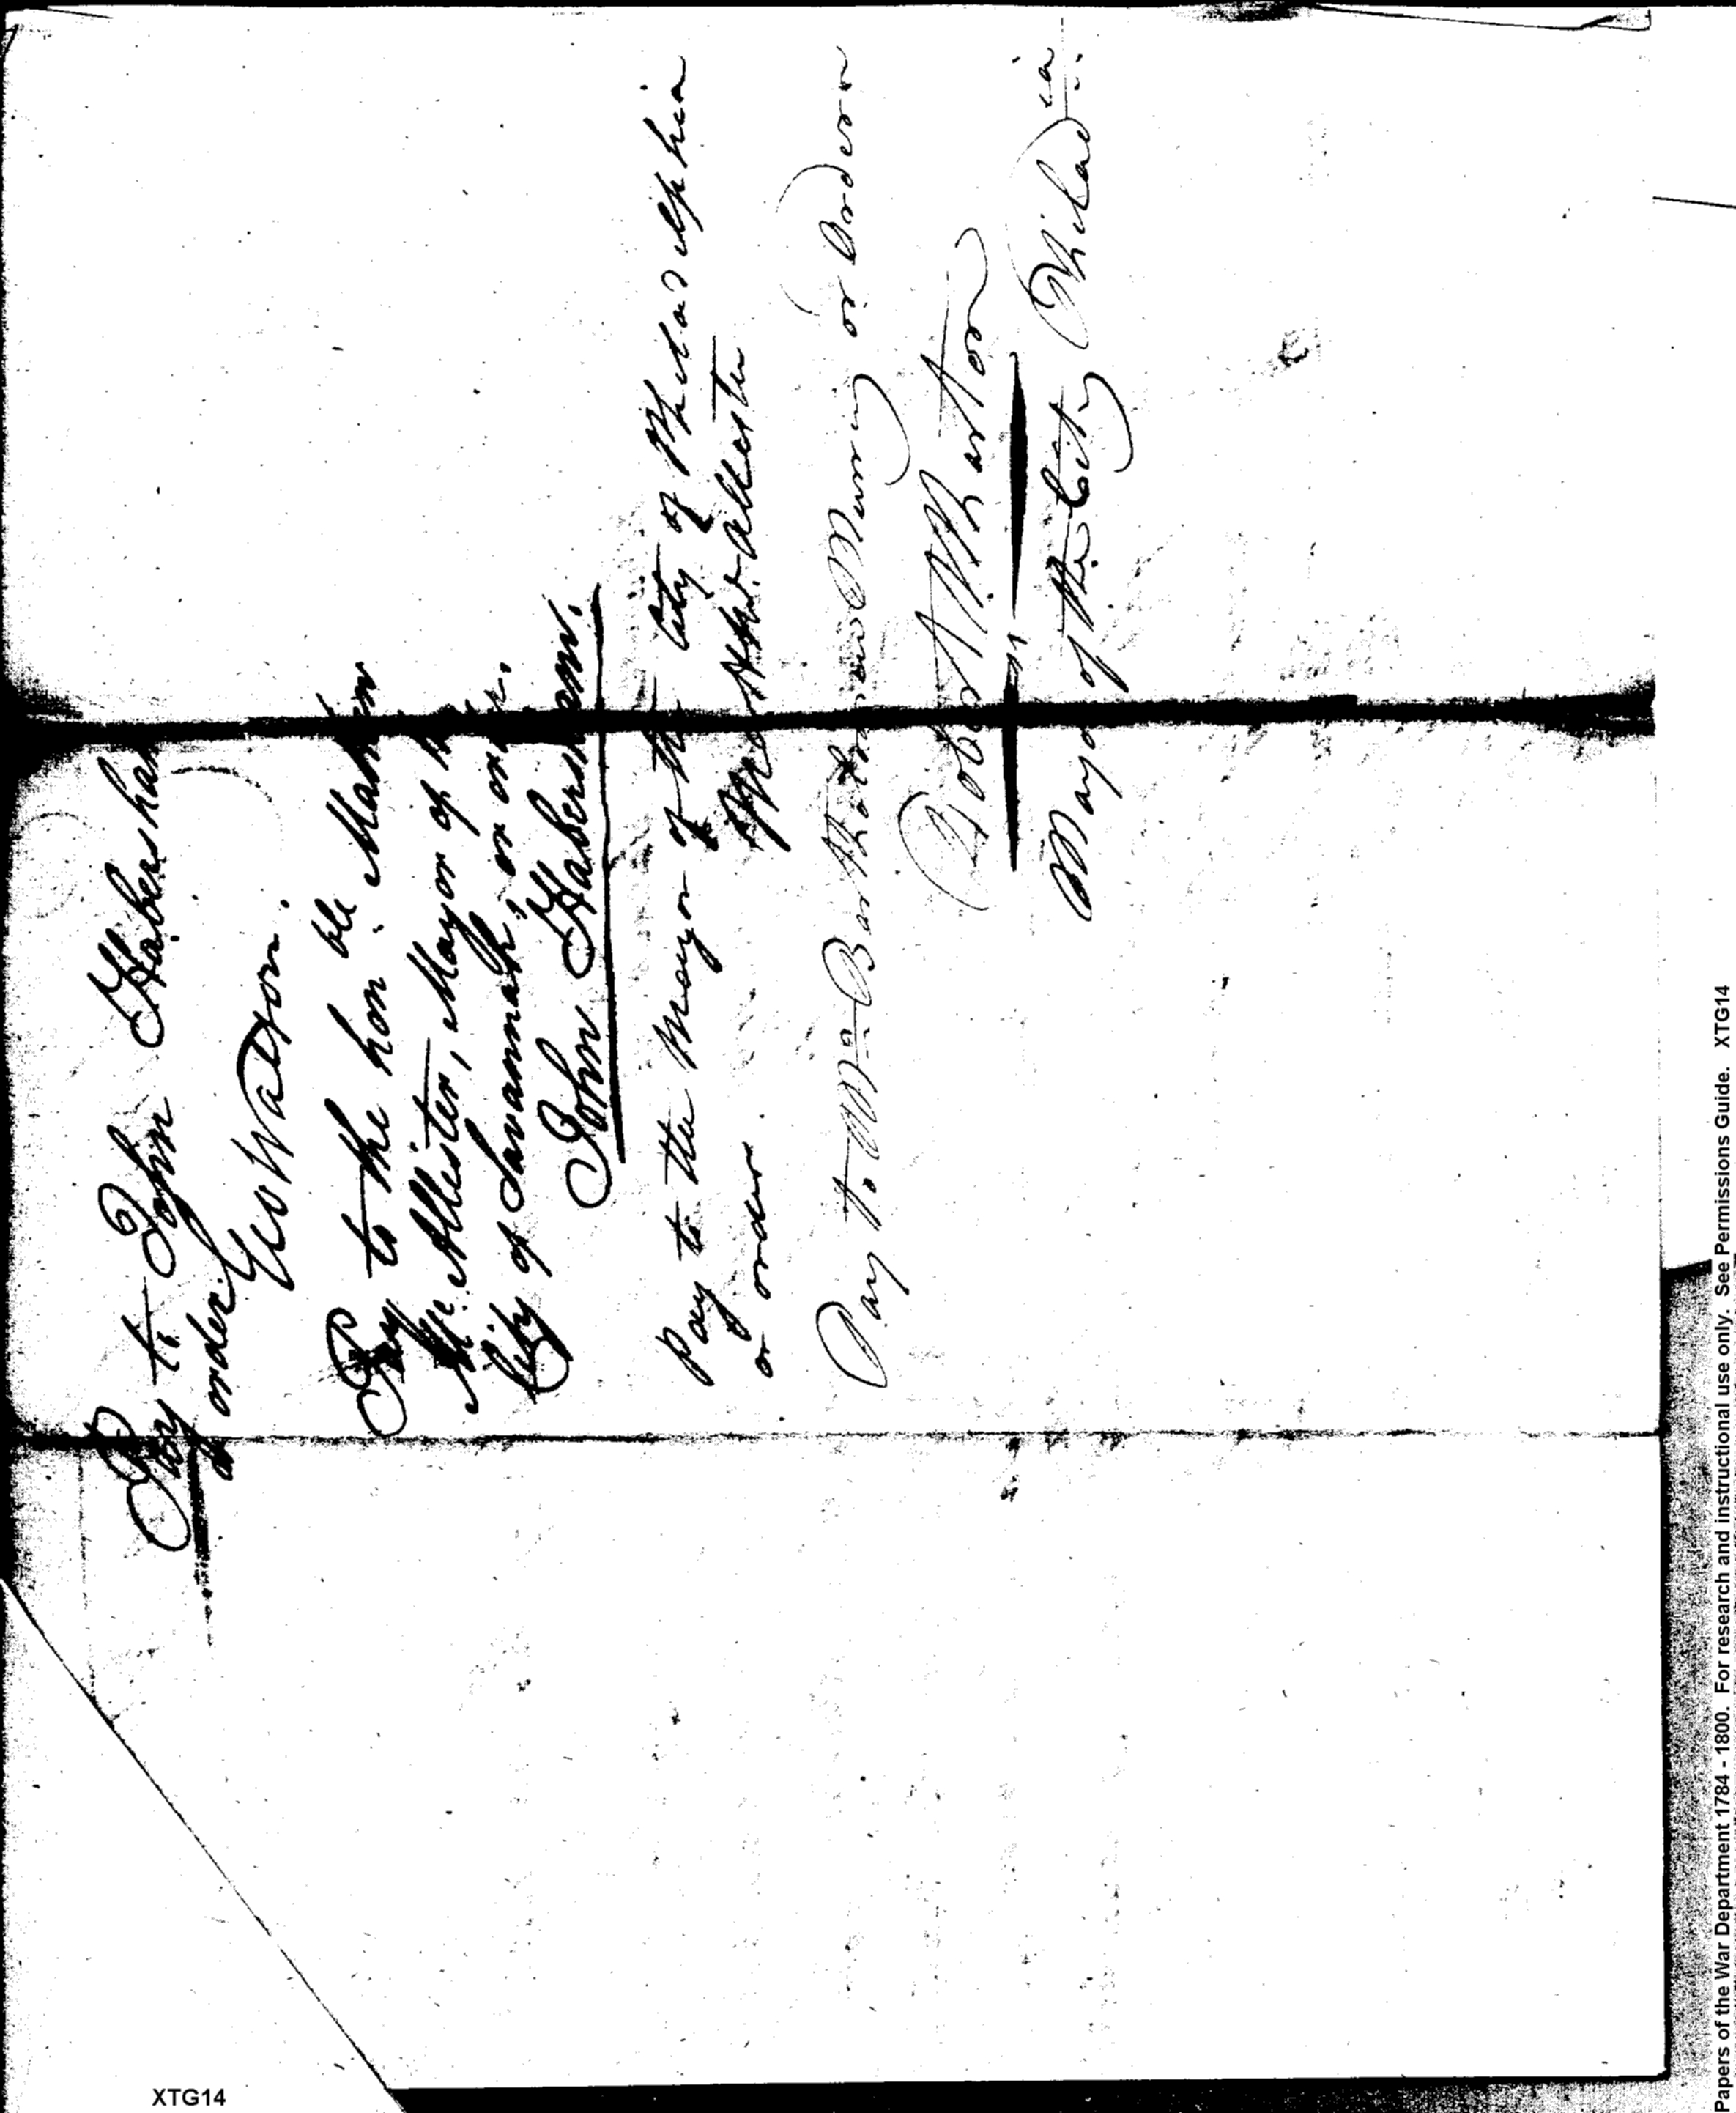 Pay to John Habersham
or order
Geo Walton.
Pay to the hon ble Mathew
Mc. Allister, Mayor of the
City of Savannah, or order.
John Habersham.
Pay to the Mayor of the City of Philadelphia
or order. Mattw. McAllister
Pay to Mr. Bartholomew Murray or Order
Robert Wharton
Mayor of the City Philad ia
XTG14
Papers of the War Department 1784 - 1800. For research and instructional use only. See Permissions Guide. XTG14